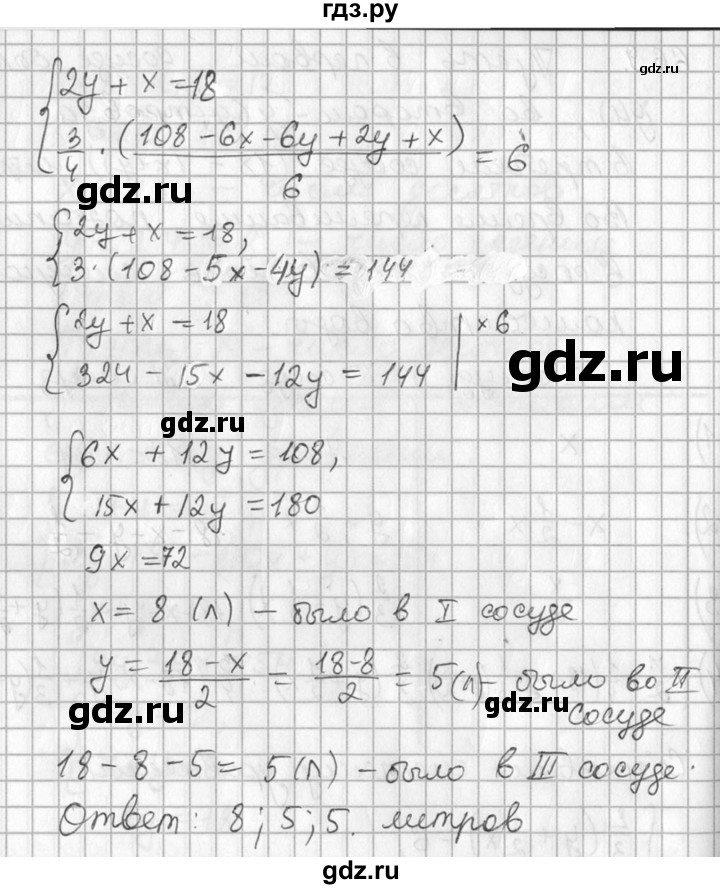 гдз.ру
gdz.ru
{2y + x = 18
{3/4 · (108 - 6x - 6y + 2y + x)/6 = 6
gdz.ru
{2y + x = 18,
{3·(108 - 5x - 4y) = 144
{2y + x = 18 | × 6
{324 - 15x - 12y = 144
gdz.ru
gdz.ru
{6x + 12y = 108,
{15x + 12y = 180
9x = 72
x = 8 (л) - было в I сосуде
y = (18 - x)/2 = (18-8)/2 = 5 (л) - было во II
сосуде
gdz.ru
gdz.ru
18 - 8 - 5 = 5 (л) - было в III сосуде.
Ответ: 8; 5; 5. литров
gdz.ru